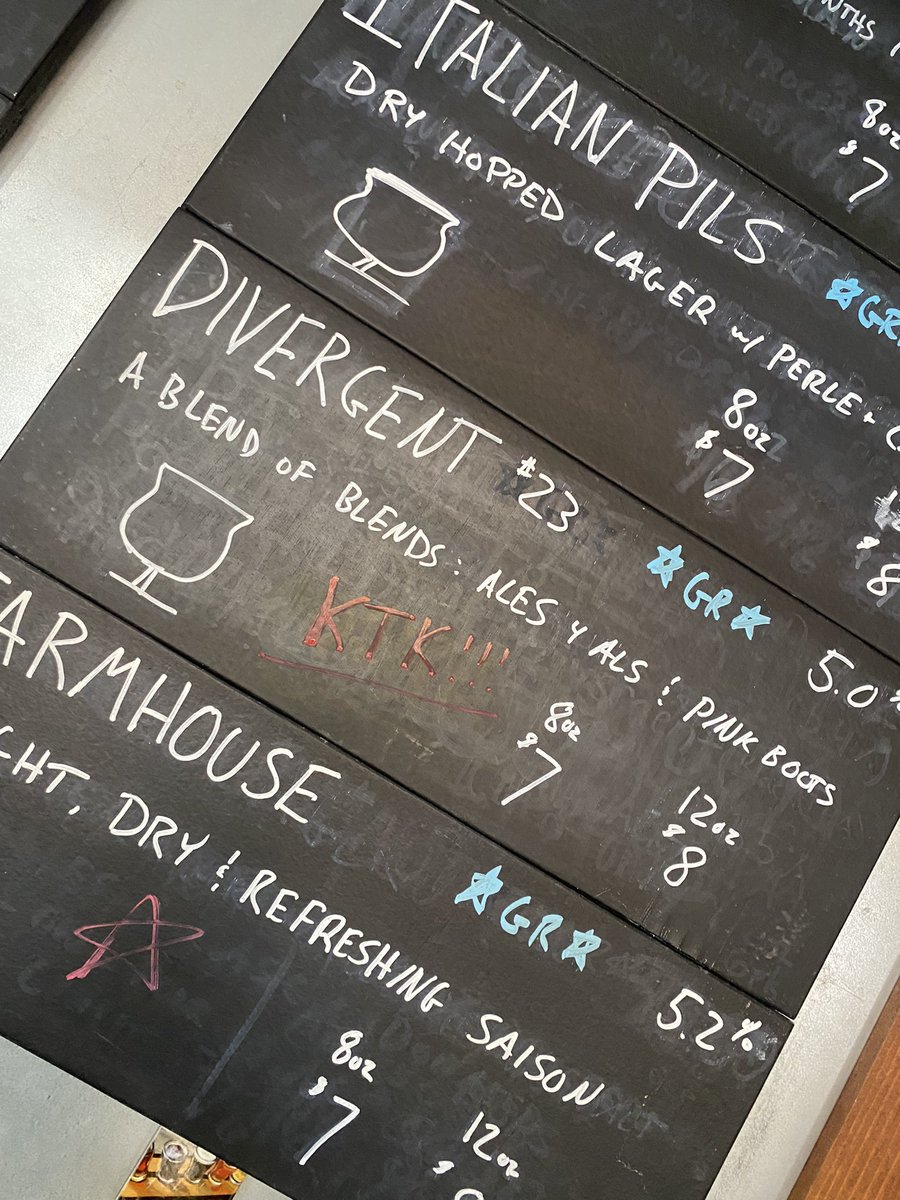 8oz
$7
ITALIAN PILS
DRY HOPPED LAGER w/ PERLE +
8oz
$7
$8
DIVERGENT #23 ☆GR☆ 5.0%
A BLEND OF BLENDS: ALES 4 ALS & PINK BOOTS
KTK!!!
8oz 12oz
$7 $8
ARMHOUSE ☆GR☆ 5.2%
GHT, DRY & REFRESHING SAISON
8oz 12oz
$7